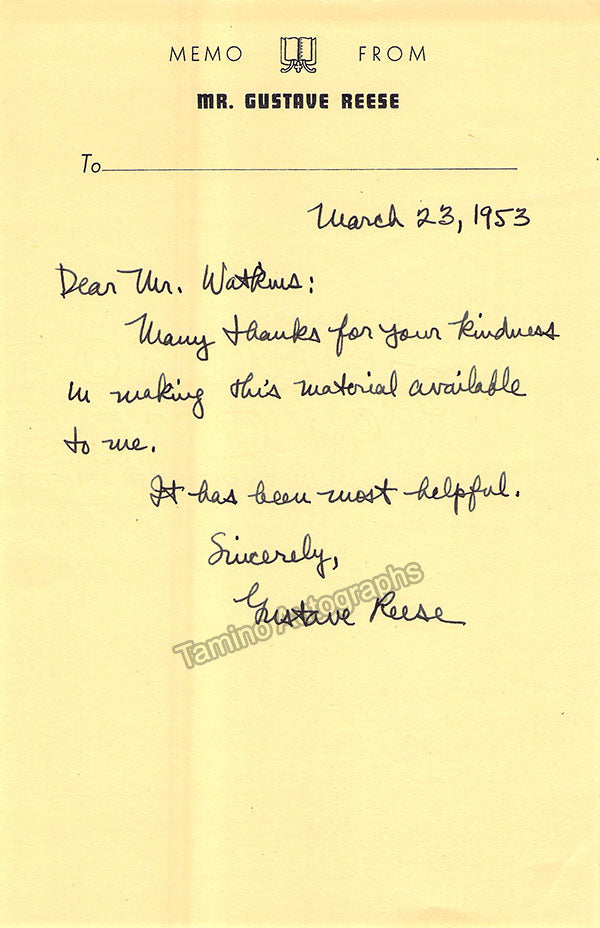 MEMO FROM
MR. GUSTAVE REESE
To
March 23, 1953
Dear Mr. Watkins:
Many thanks for your kindness
in making this material available
to me.
It has been most helpful.
Sincerely,
Gustave Reese
Tamino Autographs